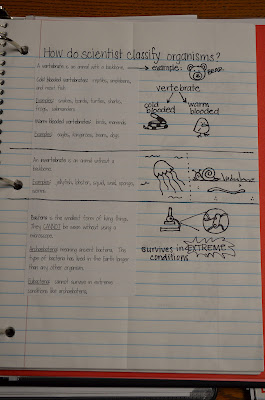 How do scientist classify organisms?
A vertebrate is an animal with a backbone.
example:
BEAR
Cold blooded vertebrates: reptiles, amphibians,
and most fish.
vertebrate
Examples: snakes, lizards, turtles, sharks,
frogs, salamanders
cold
blooded
warm
blooded
Warm blooded vertebrates: birds, mammals
Examples: eagles, kangaroos, bears, dogs
An invertebrate is an animal without a
backbone.
Examples: jellyfish, lobster, squid, snail, sponges,
worms
Bacteria is the smallest form of living things.
They CANNOT be seen without using a
microscope.
Archaebacteria meaning ancient bacteria. This
type of bacteria has lived on the Earth longer
than any other organism.
Survives in EXTREME
conditions
Eubacteria cannot survive in extreme
conditions like archaebacteria.